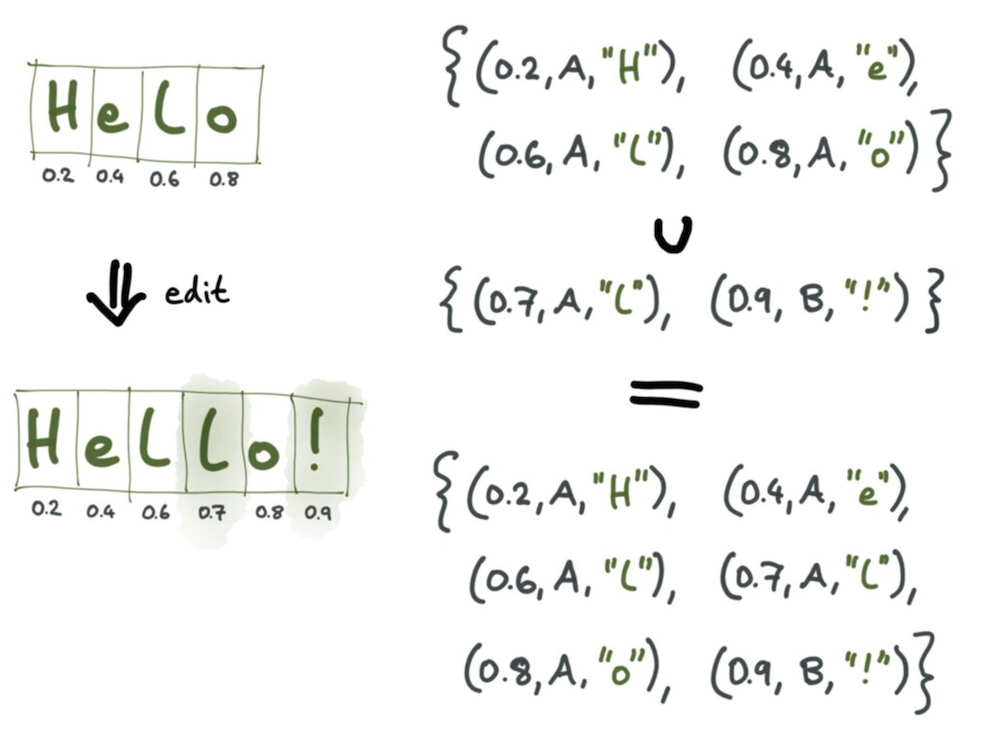 H e l o
0.2 0.4 0.6 0.8
edit
H e l l o !
0.2 0.4 0.6 0.7 0.8 0.9
{(0.2, A, "H"), (0.4, A, "e"),
(0.6, A, "l"), (0.8, A, "o")}
∪
{(0.7, A, "l"), (0.9, B, "!")}
=
{(0.2, A, "H"), (0.4, A, "e"),
(0.6, A, "l"), (0.7, A, "l"),
(0.8, A, "o"), (0.9, B, "!")}